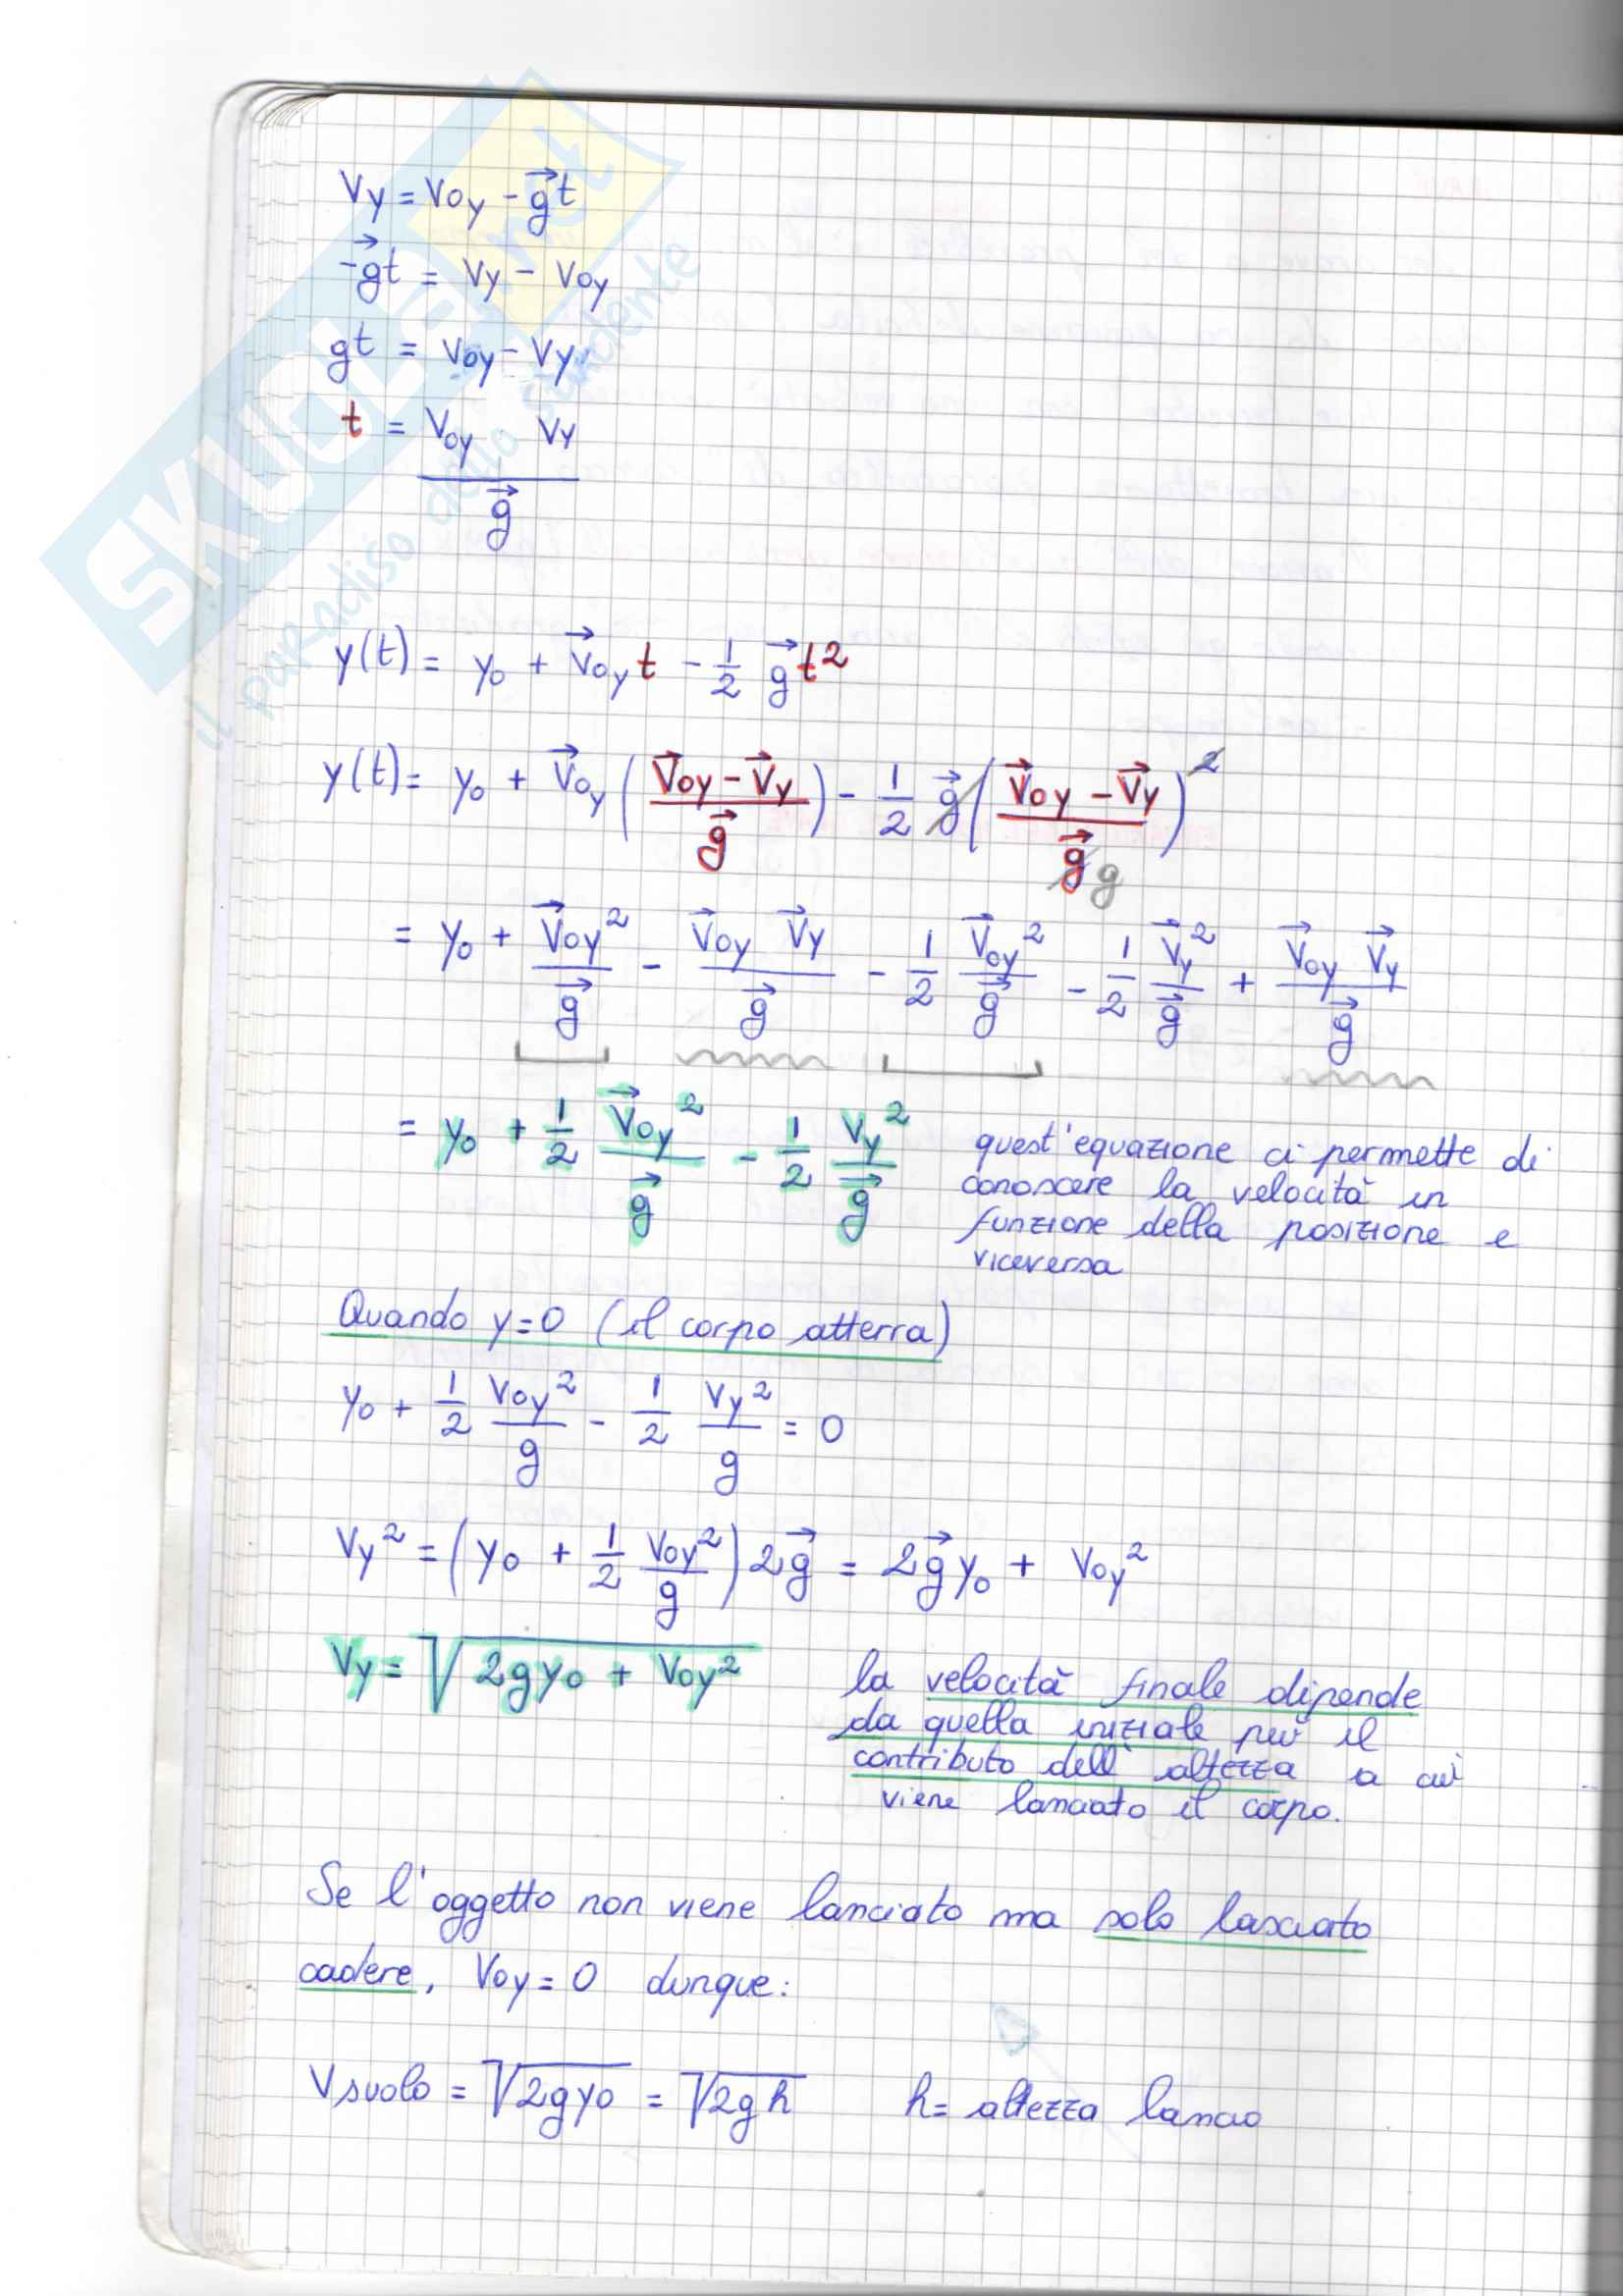 Vy = Voy - g⃗t
-g⃗t = Vy - Voy
gt = Voy - Vy
t = Voy Vy / g⃗
y(t) = y₀ + v⃗oy t - 1/2 g⃗ t²
y(t) = y₀ + V⃗oy ( (V⃗oy - V⃗y) / g⃗ ) - 1/2 g⃗ ( (V⃗oy - V⃗y) / g⃗ )² g
= y₀ + V⃗oy² / g⃗ - V⃗oy V⃗y / g⃗ - 1/2 V⃗oy² / g⃗ - 1/2 V⃗y² / g⃗ + V⃗oy V⃗y / g⃗
= y₀ + 1/2 V⃗oy² / g⃗ - 1/2 Vy² / g⃗
quest'equazione ci permette di
conoscere la velocità in
funzione della posizione e
viceversa
Quando y=0 (il corpo atterra)
y₀ + 1/2 Voy² / g - 1/2 Vy² / g = 0
Vy² = ( y₀ + 1/2 Voy² / g ) 2g⃗ = 2g⃗y₀ + Voy²
Vy = √(2gy₀ + Voy²)
la velocità finale dipende
da quella iniziale più il
contributo dell'altezza a cui
viene lanciato il corpo.
Se l'oggetto non viene lanciato ma solo lasciato
cadere, Voy = 0 dunque:
Vsuolo = √(2gy₀) = √(2gh) h = altezza lancio
SKUOLA.net
il paradiso dello studente